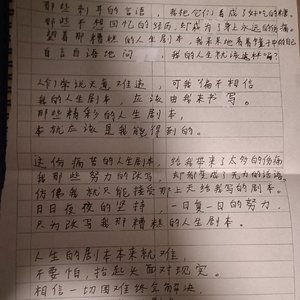 那些刺耳的言语，我把它们看成了好吃的糖。
那些不想回忆的经历，却成为了身上永远的伤痛。
望着那糟糕的人生剧本，我呆呆地看着镜子中的自己
自言自语地问，我的人生就该这样嘛？
人们常说天意难违，可我偏不相信
我的人生剧本，应该由我来书写。
那些精彩的人生剧本，
本就应该是我能得到的。
这伤痛苦的人生剧本，给我带来了太多的伤痛
我那些努力的张写，却都变成了无力的话语。
仿佛我就只能接受那上天给我写的剧本。
日日夜夜的坚持，一日复一日的努力，
只为张写我那糟糕的人生剧本。
人生的剧本本来就难，
不要怕，抬起头面对现实。
相信一切困难终会解决，